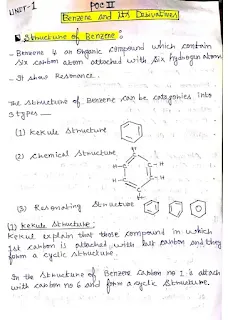 UNIT-1
POC II
Benzene and Its Derivatives
Structure of Benzene:
- Benzene is an Organic compound which contain
six carbon atom attached with six hydrogen atom
- It show Resonance.
The structure of Benzene can be categories into
3 types
(1) Kekule structure
(2) Chemical structure
(3) Resonating structure
(1) Kekule structure:
Kekule explain that those compound in which
1st carbon is attached with last carbon and they
form a cyclic structure.
In the structure of Benzene carbon no 1 is attach
with carbon no 6 and form a cyclic structure.